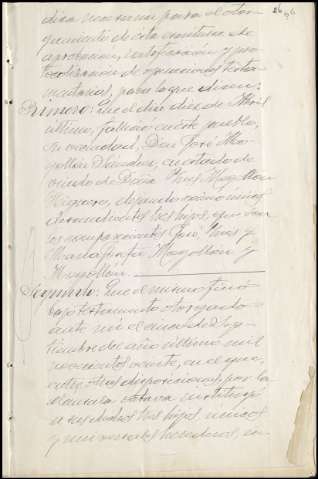 dica necesaria para el otor-
gamiento de esta escritura de
aprobación, ratificación y pro-
tocolización de operaciones testa-
mentarias, para lo que dicen:
Primero: Que el dia diez de Abril
último, falleció en este pueblo,
su vecindad, Don José Mo-
gollón Sánchez, en estado de
viudo de Doña Inés Mogollón
dejando como únicos
descendientes tres hijos, que son
los comparecientes José, Inés y
María Josefa Mogollón y
Mogollón.
Segundo: Que el mismo finó
bajo testamento otorgado
ante mí el
tiembre del año último mil
novecientos veinte, en el que,
entre otras disposiciones, por la
cláusula octava instituyó
a sus citados tres hijos únicos
y universales herederos, con